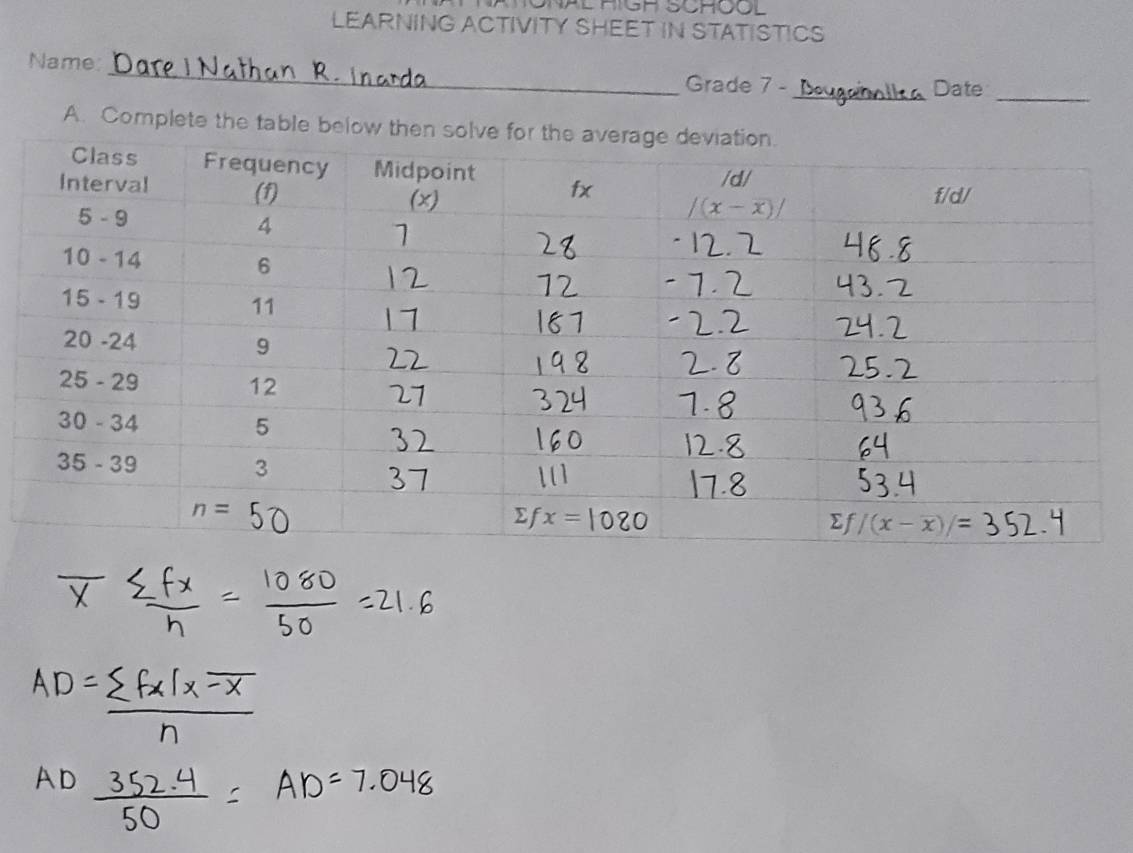 NATIONAL HIGH SCHOOL
LEARNING ACTIVITY SHEET IN STATISTICS
Name: Darel Nathan R. Inarda Grade 7 - Bougainvillea Date:
A. Complete the table below then solve for the average deviation.
Class Interval Frequency (f) Midpoint (x) fx /d/ /(x − x̅)/ f/d/
5 - 9 4 7 28 -12.2 48.8
10 - 14 6 12 72 -7.2 43.2
15 - 19 11 17 187 -2.2 24.2
20 -24 9 22 198 2.8 25.2
25 - 29 12 27 324 7.8 93.6
30 - 34 5 32 160 12.8 64
35 - 39 3 37 111 17.8 53.4
n = 50 Σfx = 1080 Σf/(x − x̅)/= 352.4
x̅ Σfx/n = 1080/50 =21.6
AD = Σfx|x − x̅/n
AD 352.4/50 = AD = 7.048